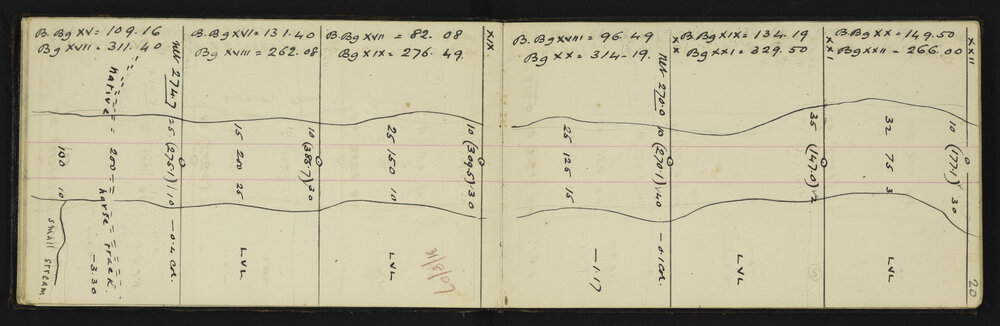 B. Bg XV = 109.16
Bg XVII = 311.40
net 274.7
native
horse track.
100
200
10
25 (275.1) 10
-0.4 Cor.
-3.30
small stream
B. Bg XVI = 131.40
Bg XVIII = 262.08
15 200 25
LVL
10 (385.7) 30
B. Bg XVII = 82.08
Bg XIX = 276.49
25 150 10
LVL
XIX
10 (309.5) 30
B. Bg XVIII = 96.49
Bg XX = 314.19.
25 125 15
-1.17
XX
net 270.0
10 (270.1) 40
-0.1 Cor.
B. Bg XIX = 134.19
Bg XXI = 329.50
LVL
XXI
35 (147.0) 12
B Bg XX = 149.50
Bg XXII = 266.00
32 75 3
LVL
XXII
10 (177.1) 30
20